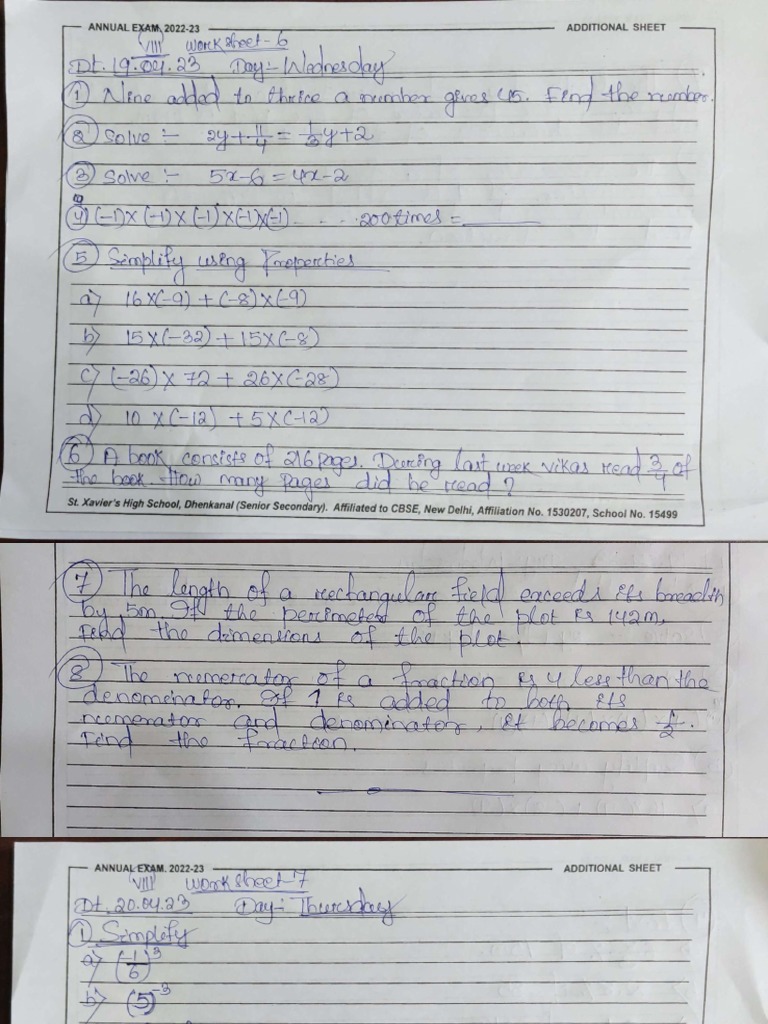 ANNUAL EXAM, 2022-23 ADDITIONAL SHEET
VIII Worksheet-6
Dt. 19.04.23 Day:- Wednesday
① Nine added to thrice a number gives 45. Find the number.
② Solve :- 2y + 11/4 = 1/3 y + 2
③ Solve :- 5x-6 = 4x-2
④ (-1)×(-1)×(-1)×(-1)×(-1) ..... 200 times = ______
⑤ Simplify using Properties
a) 16×(-9) + (-8)×(-9)
b) 15×(-32) + 15×(-8)
c) (-26)×72 + 26×(-28)
d) 10×(-12) + 5×(-12)
⑥ A book consists of 216 pages. During last week vikas read 3/4 of
the book. How many pages did he read?
St. Xavier's High School, Dhenkanal (Senior Secondary). Affiliated to CBSE, New Delhi, Affiliation No. 1530207, School No. 15499
⑦ The length of a rectangular field exceeds its breadth
by 5m. If the perimeter of the plot is 142m,
Find the dimensions of the plot.
⑧ The numerator of a fraction is 4 less than the
denominator. If 1 is added to both its
numerator and denominator, it becomes 1/2.
Find the fraction.
ANNUAL EXAM. 2022-23 ADDITIONAL SHEET
VIII Worksheet-7
Dt. 20.04.23 Day:- Thursday
① Simplify
a) (-1/6)³
b) (5)⁻³